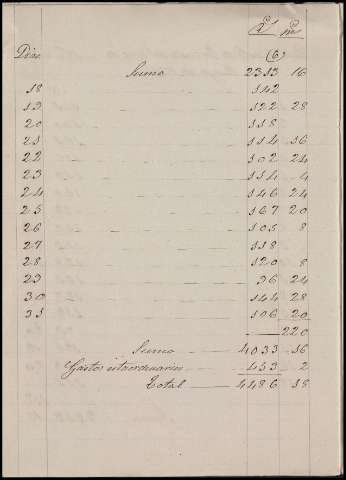 R.s mrs
(6)
Dias
Suma 2313 16
18 142
19 122 28
20 118
21 114 16
22 102 24
23 114 4
24 146 24
25 167 20
26 105 8
27 118
28 120 8
29 96 24
30 144 28
31 106 20
220
Suma 4033 16
Gastos estraordinarios 453 2
Total 4486 18